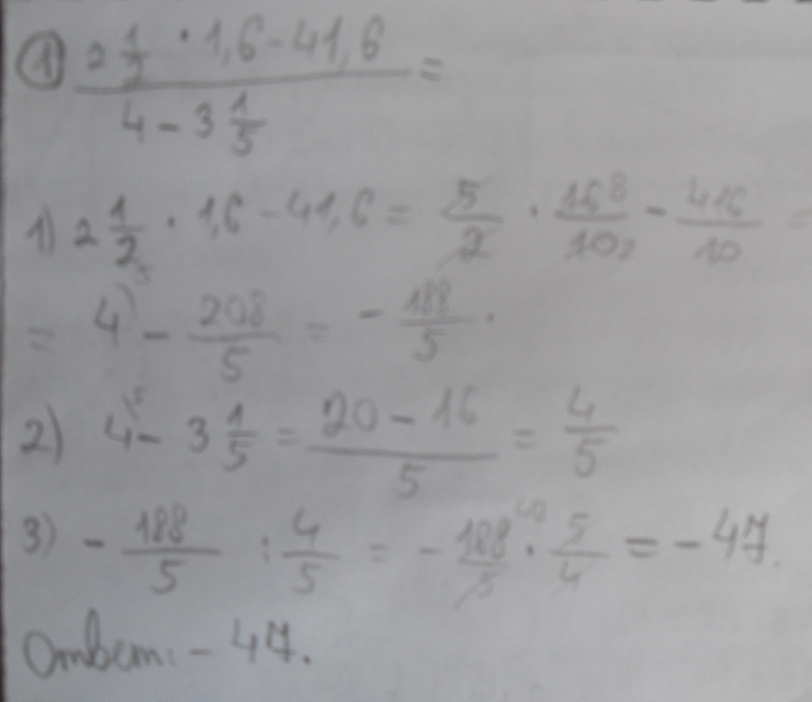 ① (2 1/2 · 1,6 - 41,6) / (4 - 3 1/5) =
1) 2 1/2 · 1,6 - 41,6 = 5/2 · 16 8/10 2 - 416/10 =
= 4 5) - 208/5 = - 188/5 .
2) 4 \5 - 3 1/5 = (20 - 16)/5 = 4/5
3) - 188/5 : 4/5 = - 188/5 · 5/4 = - 47.
Ответ: - 47.